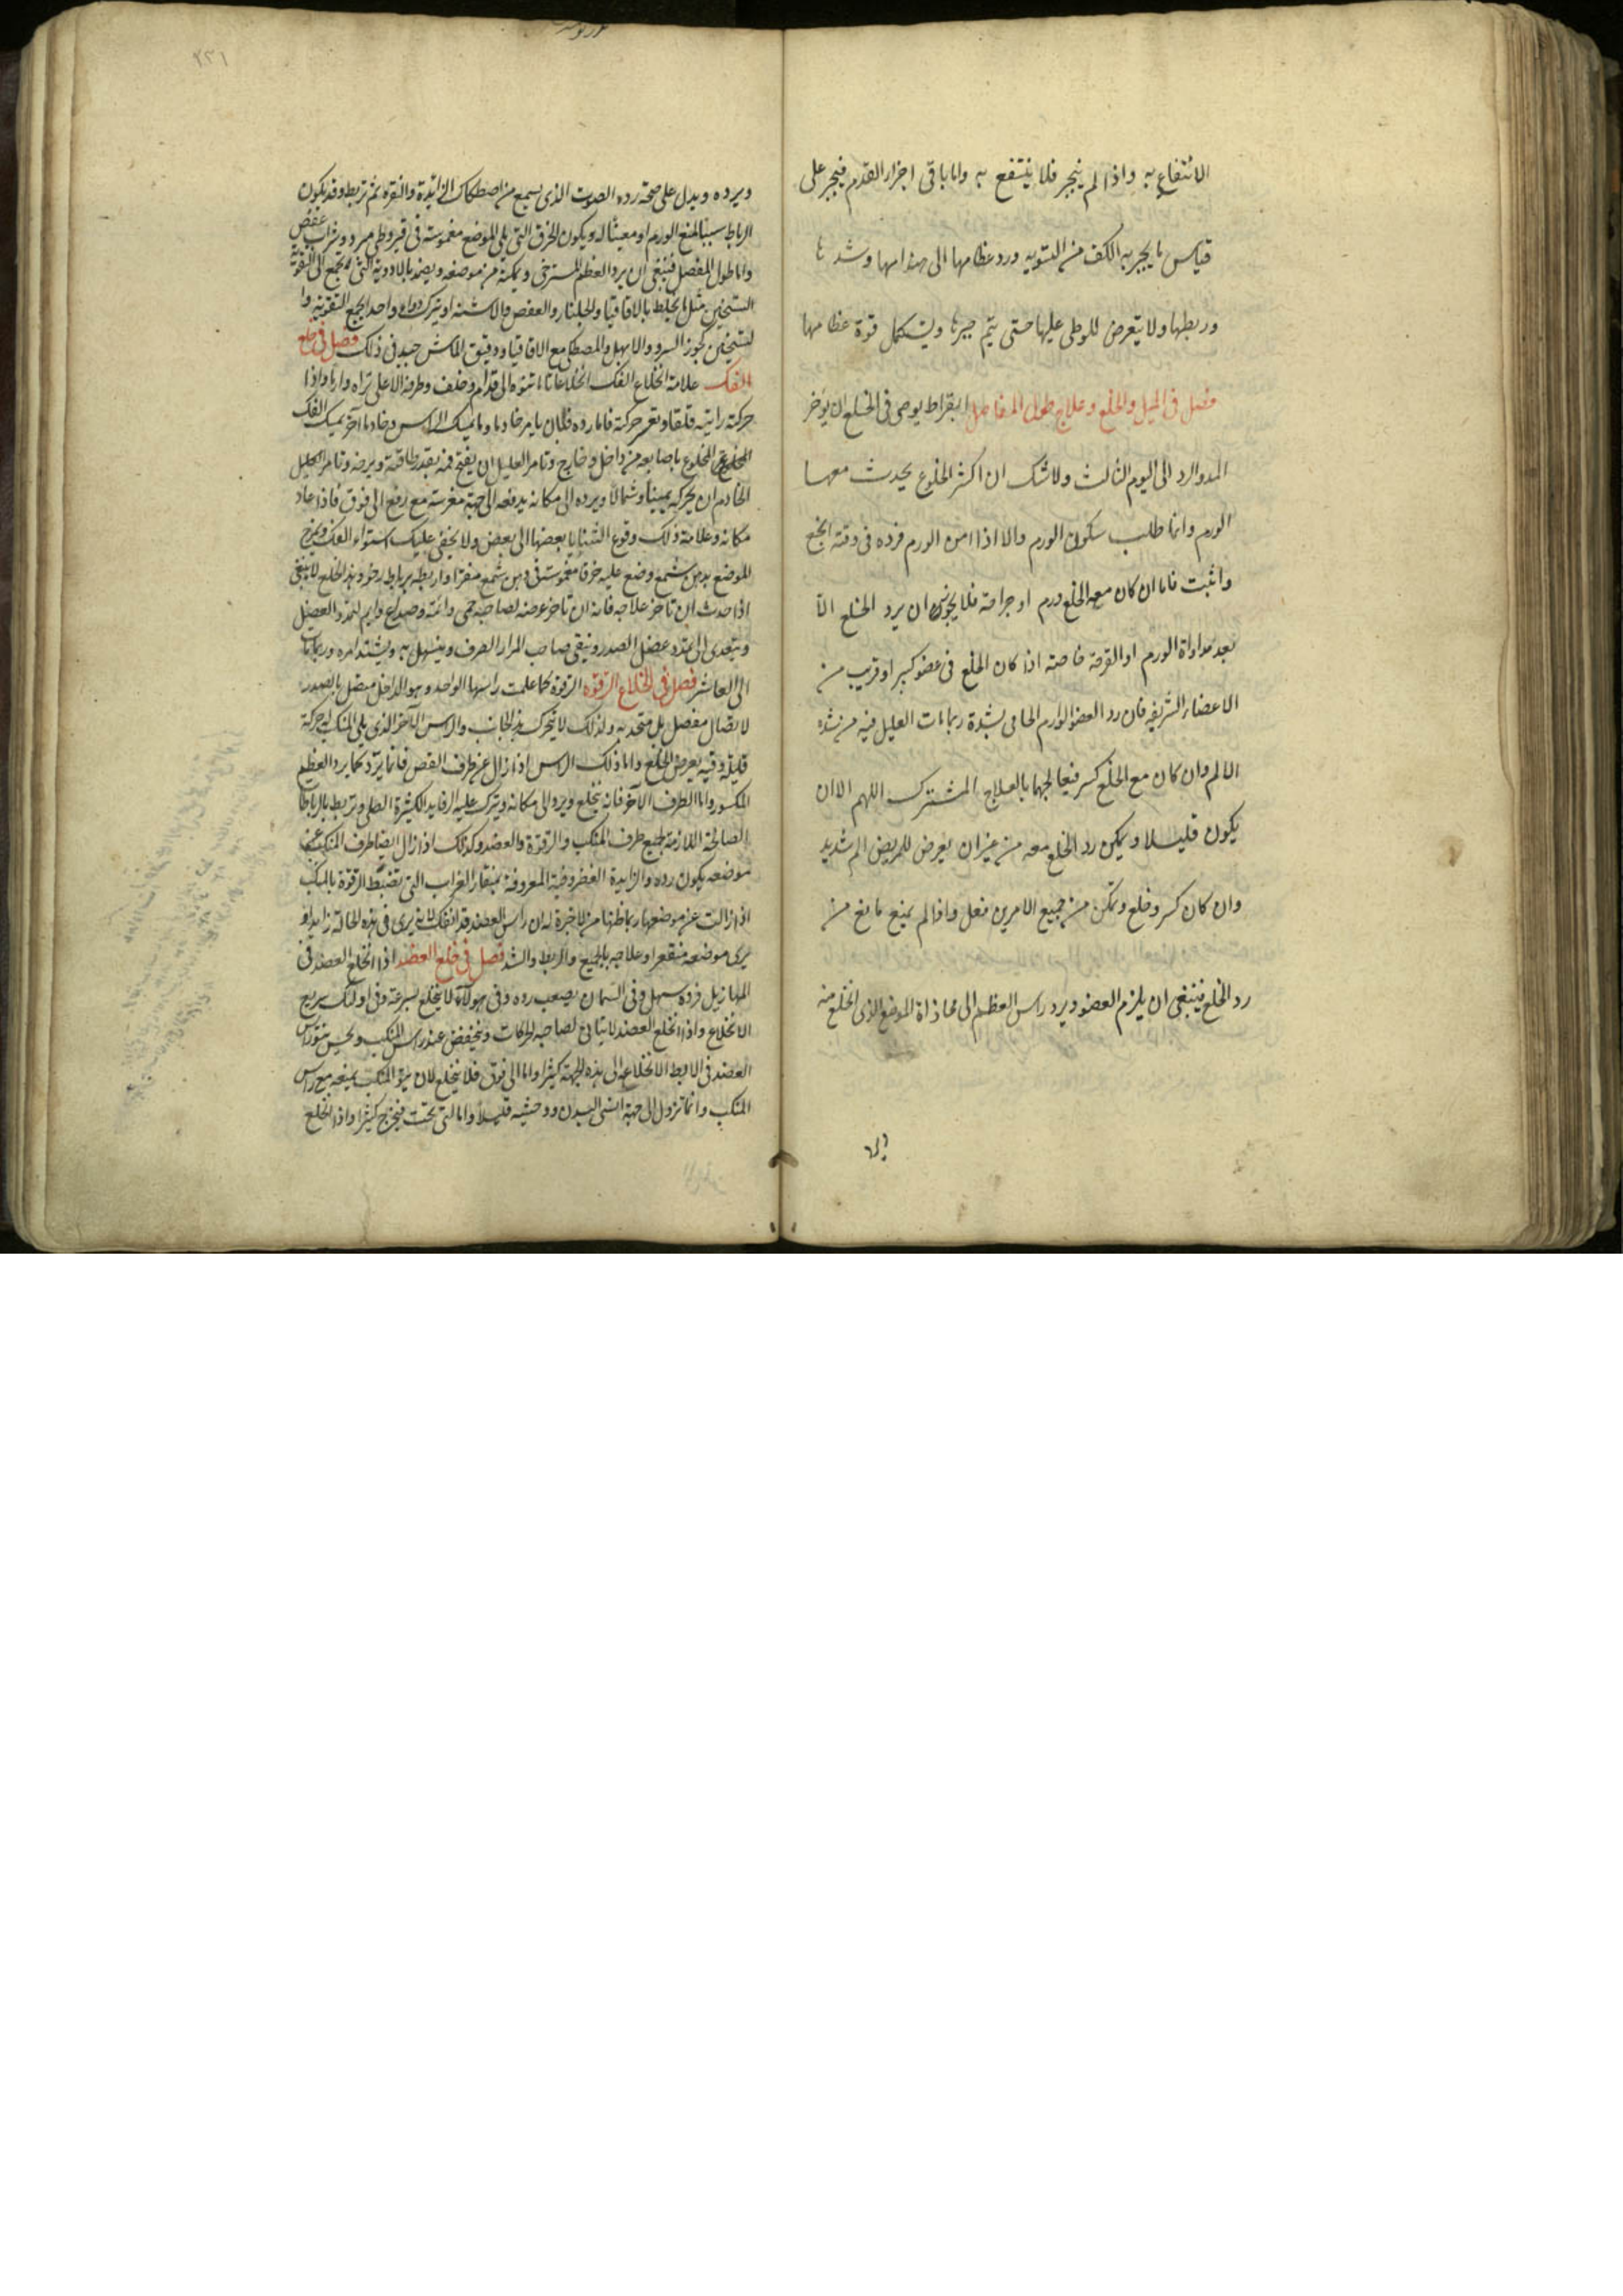 الانتفاع به واذا لم ينجبر فلا ينتفع به واما باقى اجزاء القدم فيجبر على
قياس ما يجبر به الكف من التسوية ورد عظامها الى هندامها وشدها
وربطها ولا يتعرض للوطى عليها حتى يتم جبرها ويستكمل قوة عظامها
فصل فى الميل والخلع وعلاج طول المفاصل ابقراط يوصى فى الخلع ان يؤخر
المد والرد الى اليوم الثالث ولا شك ان اكثر الخلوع يحدث معها
الورم وانما طلب سكون الورم والا اذا امن الورم فرده فى وقته انجع
واثبت فاما ان كان مع الخلع ورم او جراحة فلا يجوز ان يرد الخلع الا
بعد مداواة الورم او القرحة خاصة اذا كان الخلع فى عضو كبير او قريب من
الاعضاء الشريفه فان رد العضو الوارم الحامى بشدة ربما مات العليل فيه من شدة
الالم وان كان مع الخلع كسر فيعالجهما بالعلاج المشترك اللهم الا ان
يكون قليلا ويمكن رد الخلع معه من غير ان يعرض للمريض الم شديد
وان كان كسر وخلع وتمكن من جميع الامرين فعل واذا لم يمنع مانع من
رد الخلع فينبغى ان يلزم العضو ويرد راس العظم الى محاذاة الموضع الذى انخلع منه
ويرده ويدل على صحة رده الصوت الذى يسمع من اصطكاك الزائدة والنقرة ثم تربط وقد يكون
الرباط سببا لمنع الورم او معينا له ويكون الخرق التى يلى الموضع مغموسة فى قيروطى مبرد وشراب عفص
واما طول المفصل فينبغى ان يرد العظم المسترخى ويمكنه من موضعه ويضمد بالادوية التى تجمع الى التقوية
التسخين مثل ما يخلط بالاقاقيا والجلنار والعفص والاشنه او يترك دواء واحد الجمع التقوية وا
لتسخين كجوز السرو والابهل والمصطكى مع الاقاقيا ودقيق الماش جيد فى ذلك فصل فى خلع
الفك علامة انخلاع الفك انخلاعا تاما نتوه الى قدام وخلف وطرفه الاعلى تراه واذا
حركته رايته قلقا وتعسر حركته فاما رده فبان يامر خادما يمسك الراس وخادما آخر يمسك الفك
المخلوع باصابعه من داخل وخارج وتامر العليل ان يفتح فمه بقدر طاقته ويرخيه وتامر
الخادم ان يحركه يمينا وشمالا ويرده الى مكانه يدفعه الى جهة مغرسه مع رفع الى فوق فاذا عاد
مكانه وعلامة ذلك وقوع الثنايا بعضها الى بعض ولا يخفى عليك استواء الفك ويمرخ
الموضع بدهن وشمع وضع عليه خرقا مغموسة فى دهن شمع واربطه برباط رخو وهذا الخلع لا ينبغى
اذا حدث ان تاخر علاجه فانه ان تاخر عرضه لصاحبه حمى دائمة وصداع دايم لتمدد العضل
ويتعدى الى تمدد عضل الصدر ويقى صاحب المرار الصرف ويسهل به ويشتد امره وربما مات
الى العاشر فصل فى انخلاع الترقوه الترقوة كما علمت راسها الواحد وهو الداخل متصل بالصدر
لا بصال مفصل بل متحد به ولذلك لا يتحرك من هذا الجانب والراس الآخر الذى يلى المنكب له حركة
قليلة وفيه يعرض الخلع واما ذلك الراس اذا زال عن طرف القص فانما يرد كما يرد العظم
المكسور واما الطرف الآخر فانه ينخلع ويرد الى مكانه ويترك عليه الرفايد الكثيرة الصلبة ويربط بالرباطا
الصالحة اللازمة لجميع طرف المنكب والترقوة والعضد وكذلك اذا زال ايضا طرف المنكب عن
موضعه يكون رده والزايدة الغضروفية المعروفة بمنقار الغراب التى تضبط الترقوة بالمنكب
اذا زالت عن موضعها ربما ظنها من لا خبرة له ان راس العضد قد انفك لانه يرى فى هذه الحالة زايدا و
يرى موضعه منقعرا وعلاجه بالجميع والربط والشد فصل فى خلع العضد اذا انخلع العضد فى
المهازيل فرده سهل وفى السمان يصعب رده وفى هولاء لا ينخلع بسرعة وفى اولئك سريع
الانخلاع واذا انخلع العضد لا يتاتى لصاحبه الحركات وينخفض عند راس المنكب ويحس بنتو راس
العضد فى الابط الانخلاعه الى هذه الجهة كثيرا واما الى فوق فلا ينخلع لان نتو المنكب يمنعه مع راس
المنكب وانما تزول الى جهة انسى البدن ووحشيه قليلا واما الى تحت فيخرج كثيرا واذا انخلع